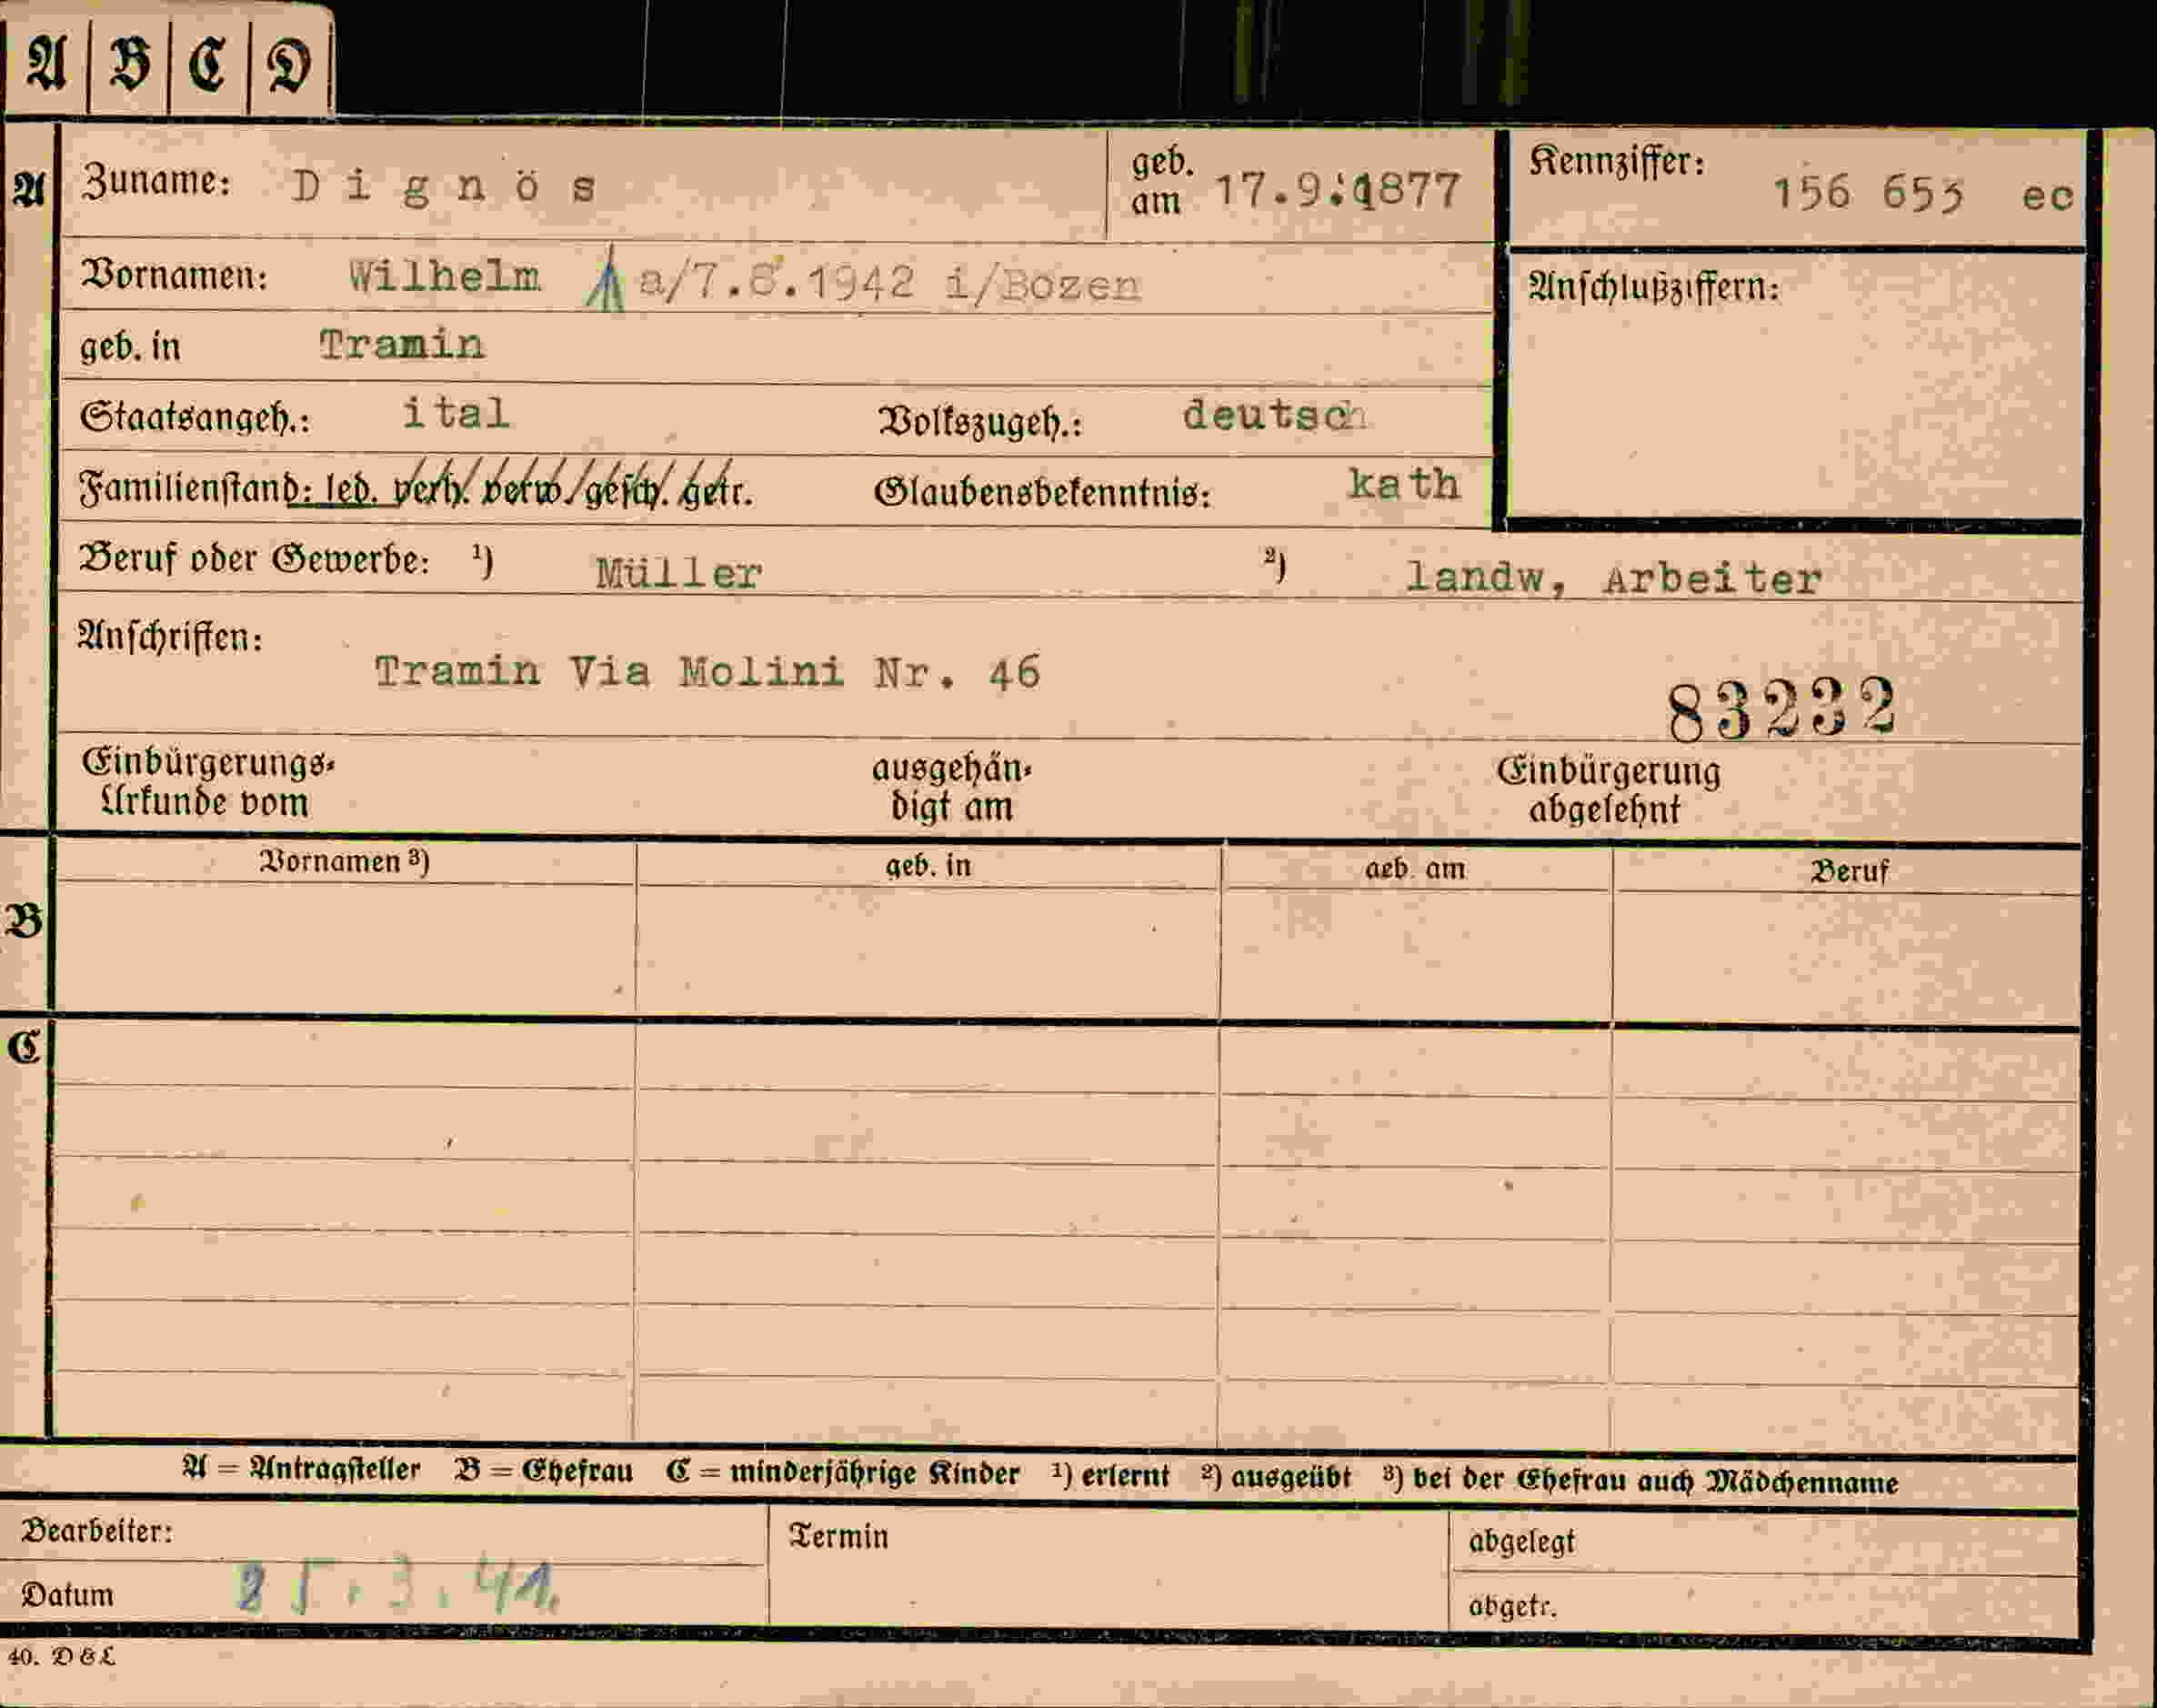 A B C D
A Zuname: Dignös geb. am 17.9.1877 Kennziffer: 156 653 ec
Vornamen: Wilhelm a/7.8.1942 i/Bozen Anschlußziffern:
geb. in Tramin
Staatsangeh.: ital Volkszugeh.: deutsch
Familienstand: led. verh. verw. gesch. getr. Glaubensbekenntnis: kath
Beruf oder Gewerbe: ¹) Müller ²) landw, Arbeiter
Anschriften:
Tramin Via Molini Nr. 46
83232
Einbürgerungs-
Urkunde vom
ausgehän-
digt am
Einbürgerung
abgelehnt
Vornamen ³) geb. in geb. am Beruf
B
C
A = Antragsteller B = Ehefrau C = minderjährige Kinder ¹) erlernt ²) ausgeübt ³) bei der Ehefrau auch Mädchenname
Bearbeiter: Termin abgelegt
Datum 25.3.41. abgetr.
40. D & L